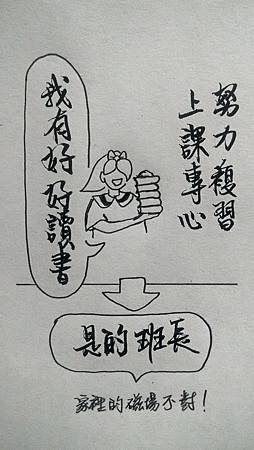 努力複習
上課專心
我有好好讀書
是的班長
家裡的磁場不對！